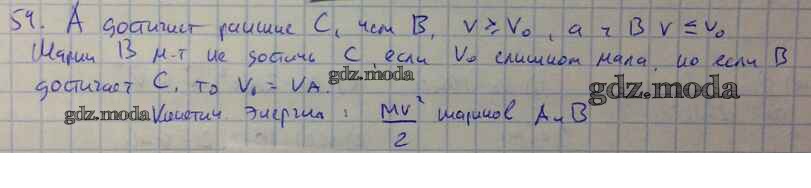 59. А достигает раньше С, чем В, V ≥ V₀, а у В V ≤ V₀
Шарик В м-т не достичь С, если V₀ слишком мала, но если В
достигает С, то V₀ = VA.
gdz.moda
gdz.moda
gdz.moda Кинетич. Энергия: MV²/2 шариков А и В